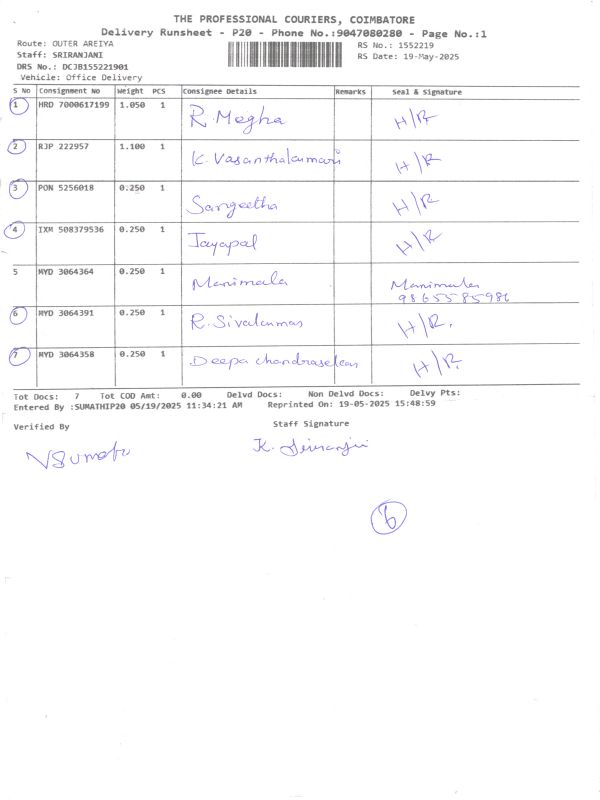 THE PROFESSIONAL COURIERS, COIMBATORE
Delivery Runsheet - P20 - Phone No.:9047080280 - Page No.:1
Route: OUTER AREIYA
RS No.: 1552219
Staff: SRIRANJANI
RS Date: 19-May-2025
DRS No.: DCJB155221901
Vehicle: Office Delivery
S No Consignment No Weight PCS Consignee Details Remarks Seal & Signature
1 HRD 7000617199 1.050 1 R.Megha H/R
2 RJP 222957 1.100 1 K.Vasanthakumari H/R
3 PON 5256018 0.250 1 Sangeetha H/R
4 IXM 508379536 0.250 1 Jayapal H/R
5 MYD 3064364 0.250 1 Manimala Manimala
9865585986
6 MYD 3064391 0.250 1 R.Sivakumar H/R.
7 MYD 3064358 0.250 1 Deepa chandrasekar H/R
Tot Docs: 7 Tot COD Amt: 0.00 Delvd Docs: Non Delvd Docs: Delvy Pts:
Entered By :SUMATHIP20 05/19/2025 11:34:21 AM Reprinted On: 19-05-2025 15:48:59
Verified By Staff Signature
K.
6